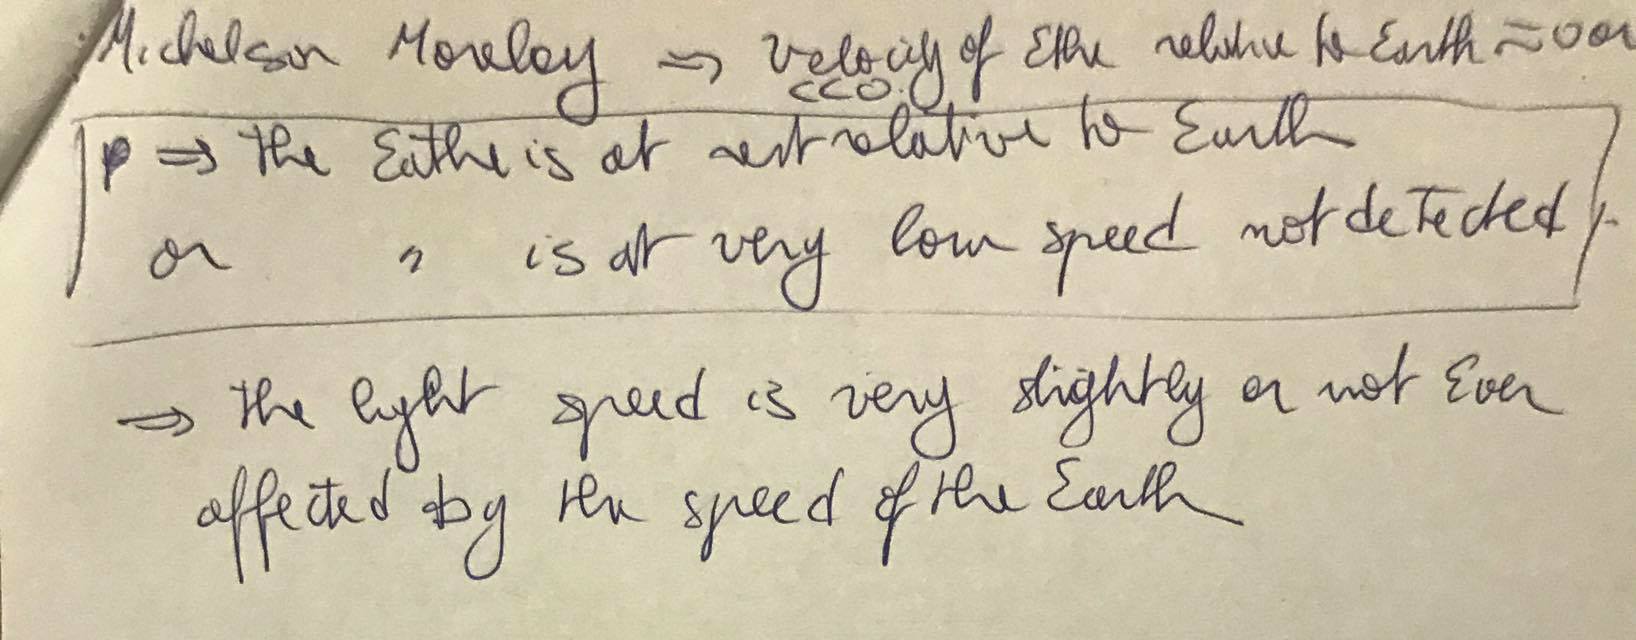 Michelson Moreley ⇒ velocity of Ethe relative to Earth ≈ 0 or
<<0.
⇒ the Eathe is at rest relative to Earth
or " is at very low speed not detected
⇒ the light speed is very slightly or not Even
affected by the speed of the Earth